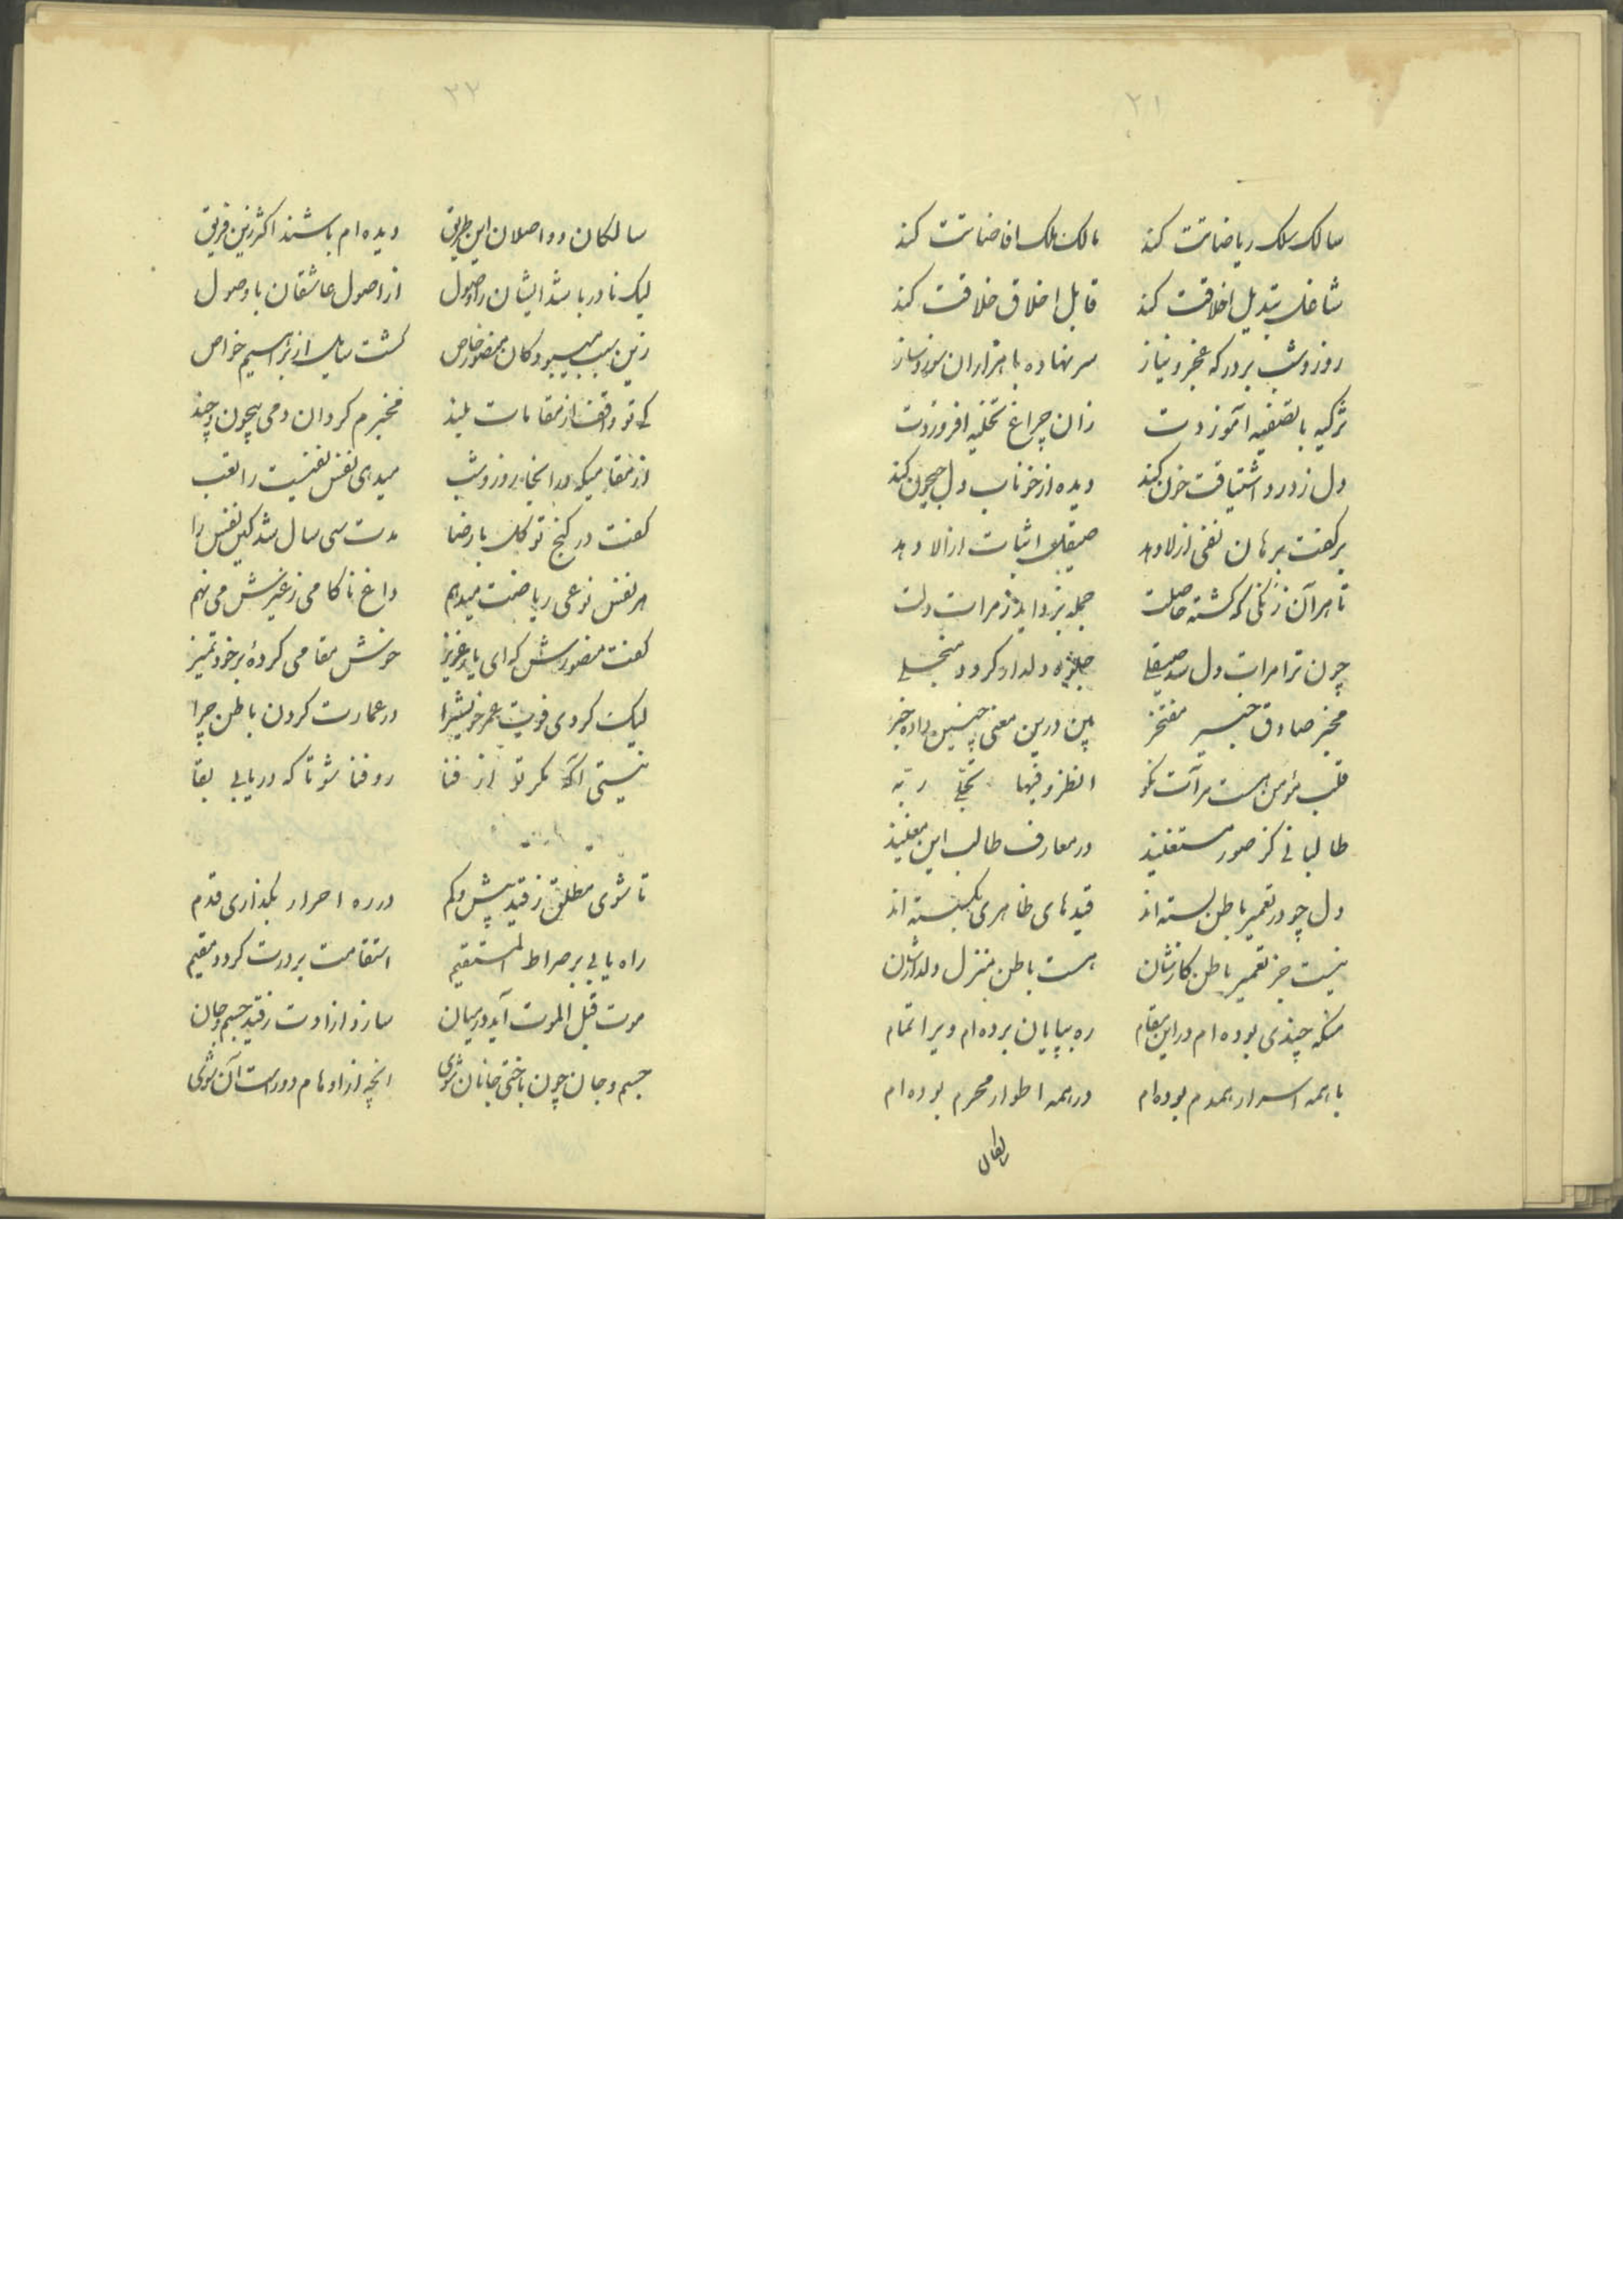 ۲۱
سالک سلک ریاضاتت کند مالک ملک افاضاتت کند
شاغل تبدیل اخلاقت کند قابل اخلاق خلاقت کند
روز و شب بر درگه عجز و نیاز سر نهاده با هزاران سوز و ساز
تزکیه با تصفیه آموزدت زان چراغ تخلیه افروزدت
دل ز درد اشتیاقت خون کند دیده از خوناب دل جیحون کند
بر کفت برهان نفی از لا دهد صیقل اثبات از الا دهد
تا هر آن زنگی که گشته حاصلت جمله بزداید ز مرات دلت
چون ترا مرات دل شد صیقلی جلوه دلدار گردد منجلی
مخبر صادق خبیر مفتخر بین درین معنی چنین داده خبر
قلب مؤمن هست مرآت نکو انظروا فیها تجلی ربه
طالبانی کز صور مستغنیند در معارف طالب این معنیند
دل چو در تعمیر باطن بسته‌اند قیدهای ظاهری بگسسته‌اند
نیست جز تعمیر باطن کارشان هست باطن منزل دلدارشان
منکه چندی بوده‌ام در این مقام ره بپایان برده‌ام ویرا تمام
با همه اسرار همدم بوده‌ام در همه اطوار محرم بوده‌ام
۲۲
سالکان و واصلان این طریق دیده‌ام باشند اکثر زین فریق
لیک نادر باشد ایشان را وصول از اصول عاشقان با وصول
زین سبب میبود کان منصور خاص گشت سایل از براهیم خواص
کی تو واقف از مقامات بلند مخبرم گردان دمی بیچون و چند
از مقامیکه در انجا روز و شب میدهی نفس نفیست را تعب
گفت در کنج توکل با رضا مدت سی سال شد کین نفس را
هر نفس نوعی ریاضت میدهم داغ ناکامی ز غیرش می نهم
گفت منصورش که ای یار عزیز خوش مقامی کردهٔ بر خود تمیز
لیک کردی فوت عمر خویشرا در عمارت کردن باطن چرا
نیستی آگه مگر تو از فنا رو فنا شو تا که دریابی بقا
تا شوی مطلق ز قید بیش و کم در ره احرار بگذاری قدم
راه یابی بر صراط المستقیم استقامت بر درت گردد مقیم
موت قبل الموت آید در میان سازد ازادت ز قید جسم و جان
جسم و جان چون باختی جانان شوی انچه از اوهام دور است آن شوی